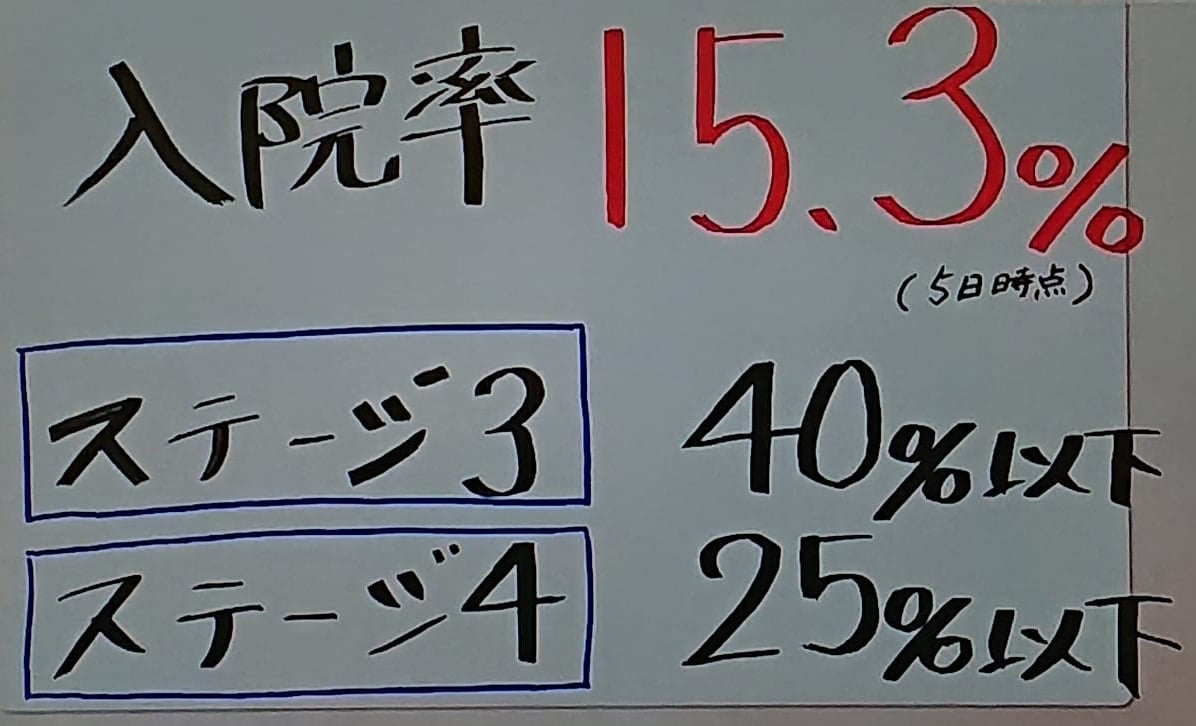 入院率 15.3%
(5日時点)
ステージ3 40%以下
ステージ4 25%以下